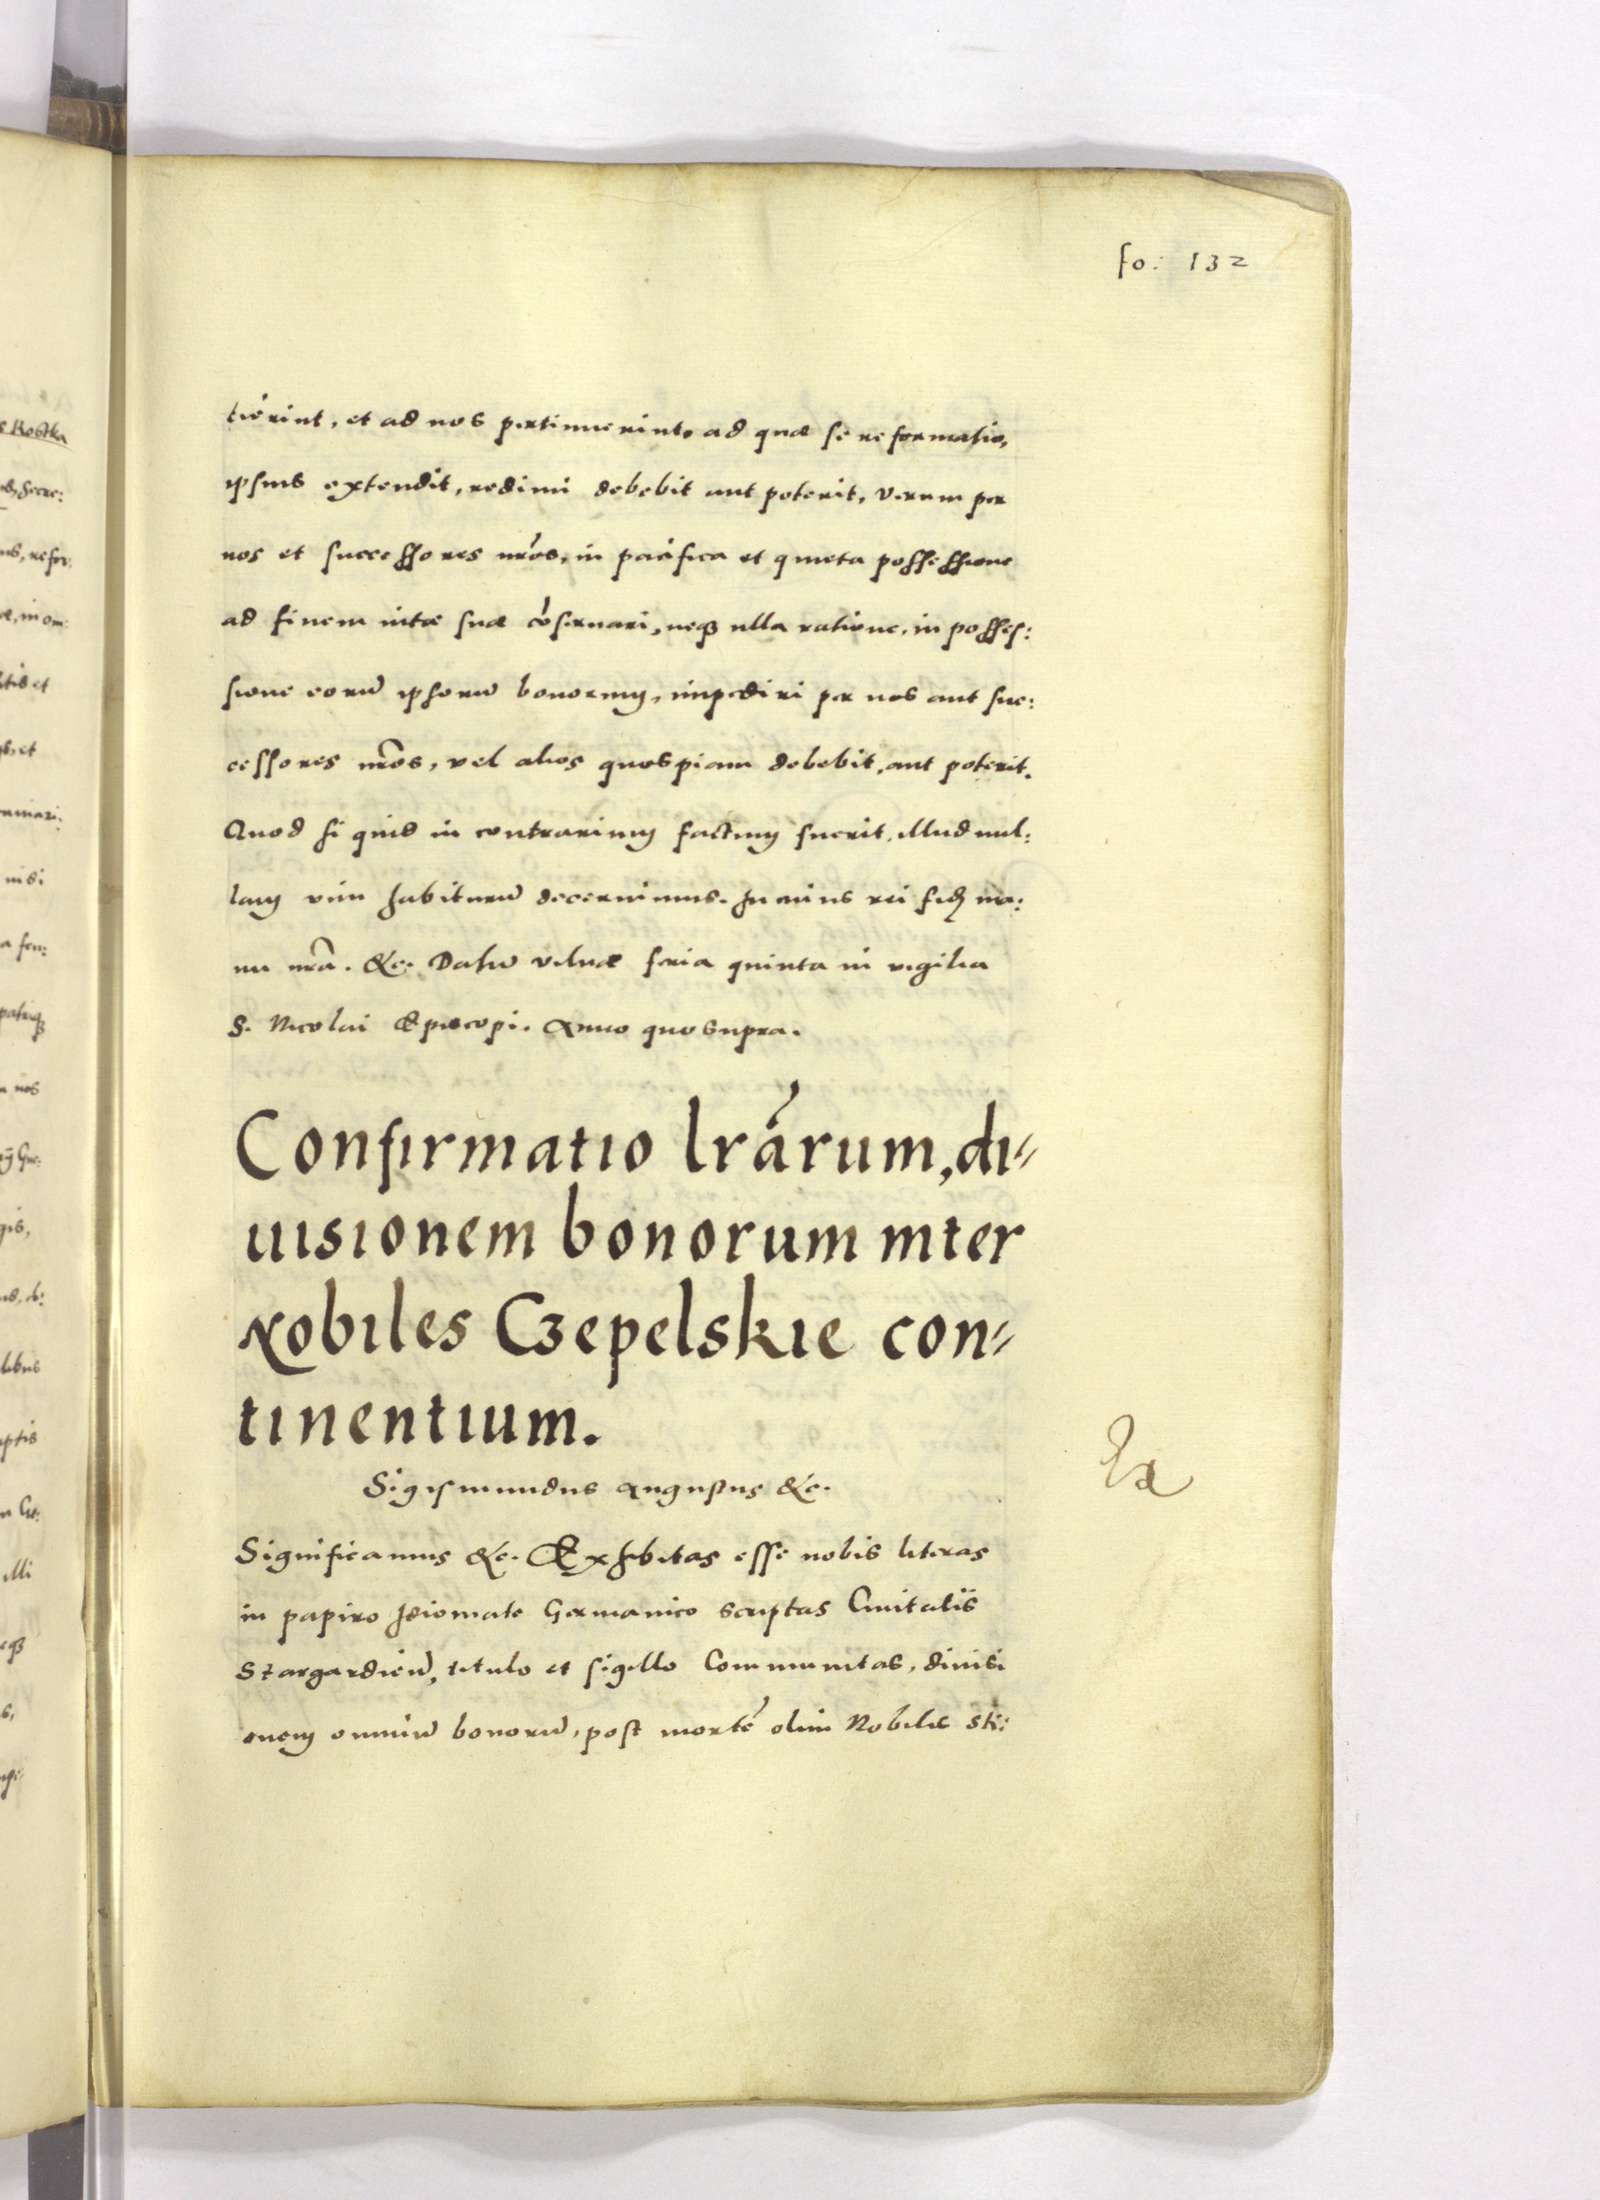 fo: 132
tiērint, et ad nos pertinuerint, ad quæ se reformatio,
ipsius extendit, redimi debebit aut poterit, verum per
nos et successores nr̄os, in pacifica et quieta possessione
ad finem uitæ suæ cōseruari, neqꝫ ulla ratione, in posses:
sione eorū ipsorū bonorum, impediri per nos aut suc:
cessores nr̄os, vel alios quospiam debebit, aut poterit.
Quod si quid in contrarium factum fuerit, illud nul:
lam vim habiturū decernimus. In cuius rei fidem ma:
nu nr̄a. &c. Datū vilnæ feria quinta in vigilia
S. Nicolai Episcopi. Anno quo supra.
Confirmatio lrārum, di⸗
uisionem bonorum inter
Nobiles Czepelskie con⸗
tinentium.
Sigismundus Augustus &c.
Significamus &c. Exhibitas esse nobis literas
in papiro Idiomate Germanico scriptas Ciuitatis
Stargardien̄, titulo et sigillo Communitas, diuisi
onem omniū bonorū, post mortē olim Nobilis Sti:
s Kostka
refor:
et
nisi
nos
illi